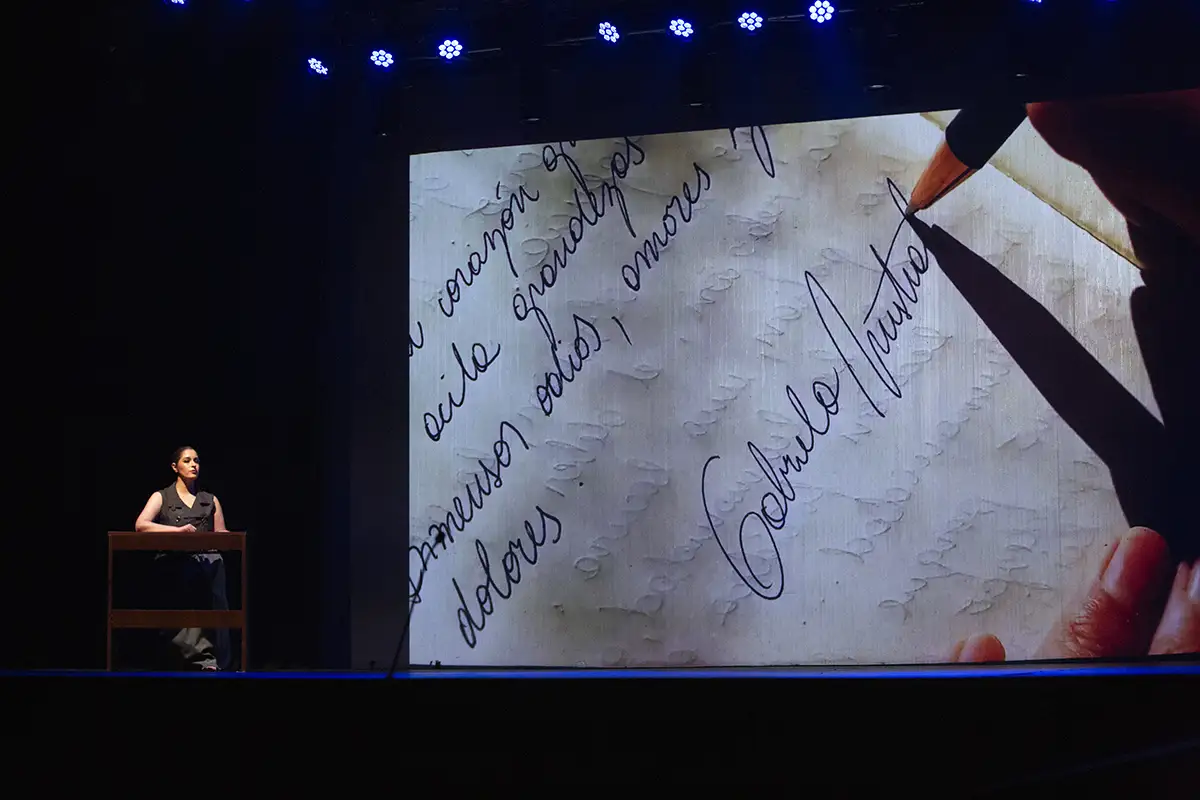 corazón
ocila grandezas
inmensos odios, amores
dolores.
Gabriela Mistral